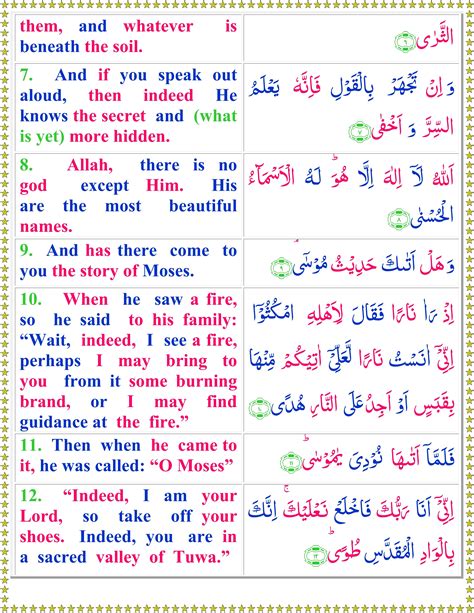 them, and whatever is
beneath the soil.
الثَّرٰى ﴿٦﴾
7. And if you speak out
aloud, then indeed He
knows the secret and (what
is yet) more hidden.
وَ اِنْ تَجْهَرْ بِالْقَوْلِ فَاِنَّهٗ يَعْلَمُ
السِّرَّ وَ اَخْفٰى ﴿٧﴾
8. Allah, there is no
god except Him. His
are the most beautiful
names.
اَللّٰهُ لَاۤ اِلٰهَ اِلَّا هُوَ ؕ لَهُ الْاَسْمَآءُ
الْحُسْنٰى ﴿٨﴾
9. And has there come to
you the story of Moses.
وَ هَلْ اَتٰٮكَ حَدِيْثُ مُوْسٰى ۘ ﴿٩﴾
10. When he saw a fire,
so he said to his family:
“Wait, indeed, I see a fire,
perhaps I may bring to
you from it some burning
brand, or I may find
guidance at the fire.”
اِذْ رَاٰ نَارًا فَقَالَ لِاَهْلِهِ امْكُثُوْۤا
اِنِّىْۤ اٰنَسْتُ نَارًا لَّعَلِّىْۤ اٰتِيْكُمْ مِّنْهَا
بِقَبَسٍ اَوْ اَجِدُ عَلَى النَّارِ هُدًى ﴿١٠﴾
11. Then when he came to
it, he was called: “O Moses”
فَلَمَّاۤ اَتٰٮهَا نُوْدِىَ يٰمُوْسٰى ؕ ﴿١١﴾
12. “Indeed, I am your
Lord, so take off your
shoes. Indeed, you are in
a sacred valley of Tuwa.”
اِنِّىْۤ اَنَا رَبُّكَ فَاخْلَعْ نَعْلَيْكَ ۚ اِنَّكَ
بِالْوَادِ الْمُقَدَّسِ طُوًى ؕ ﴿١٢﴾